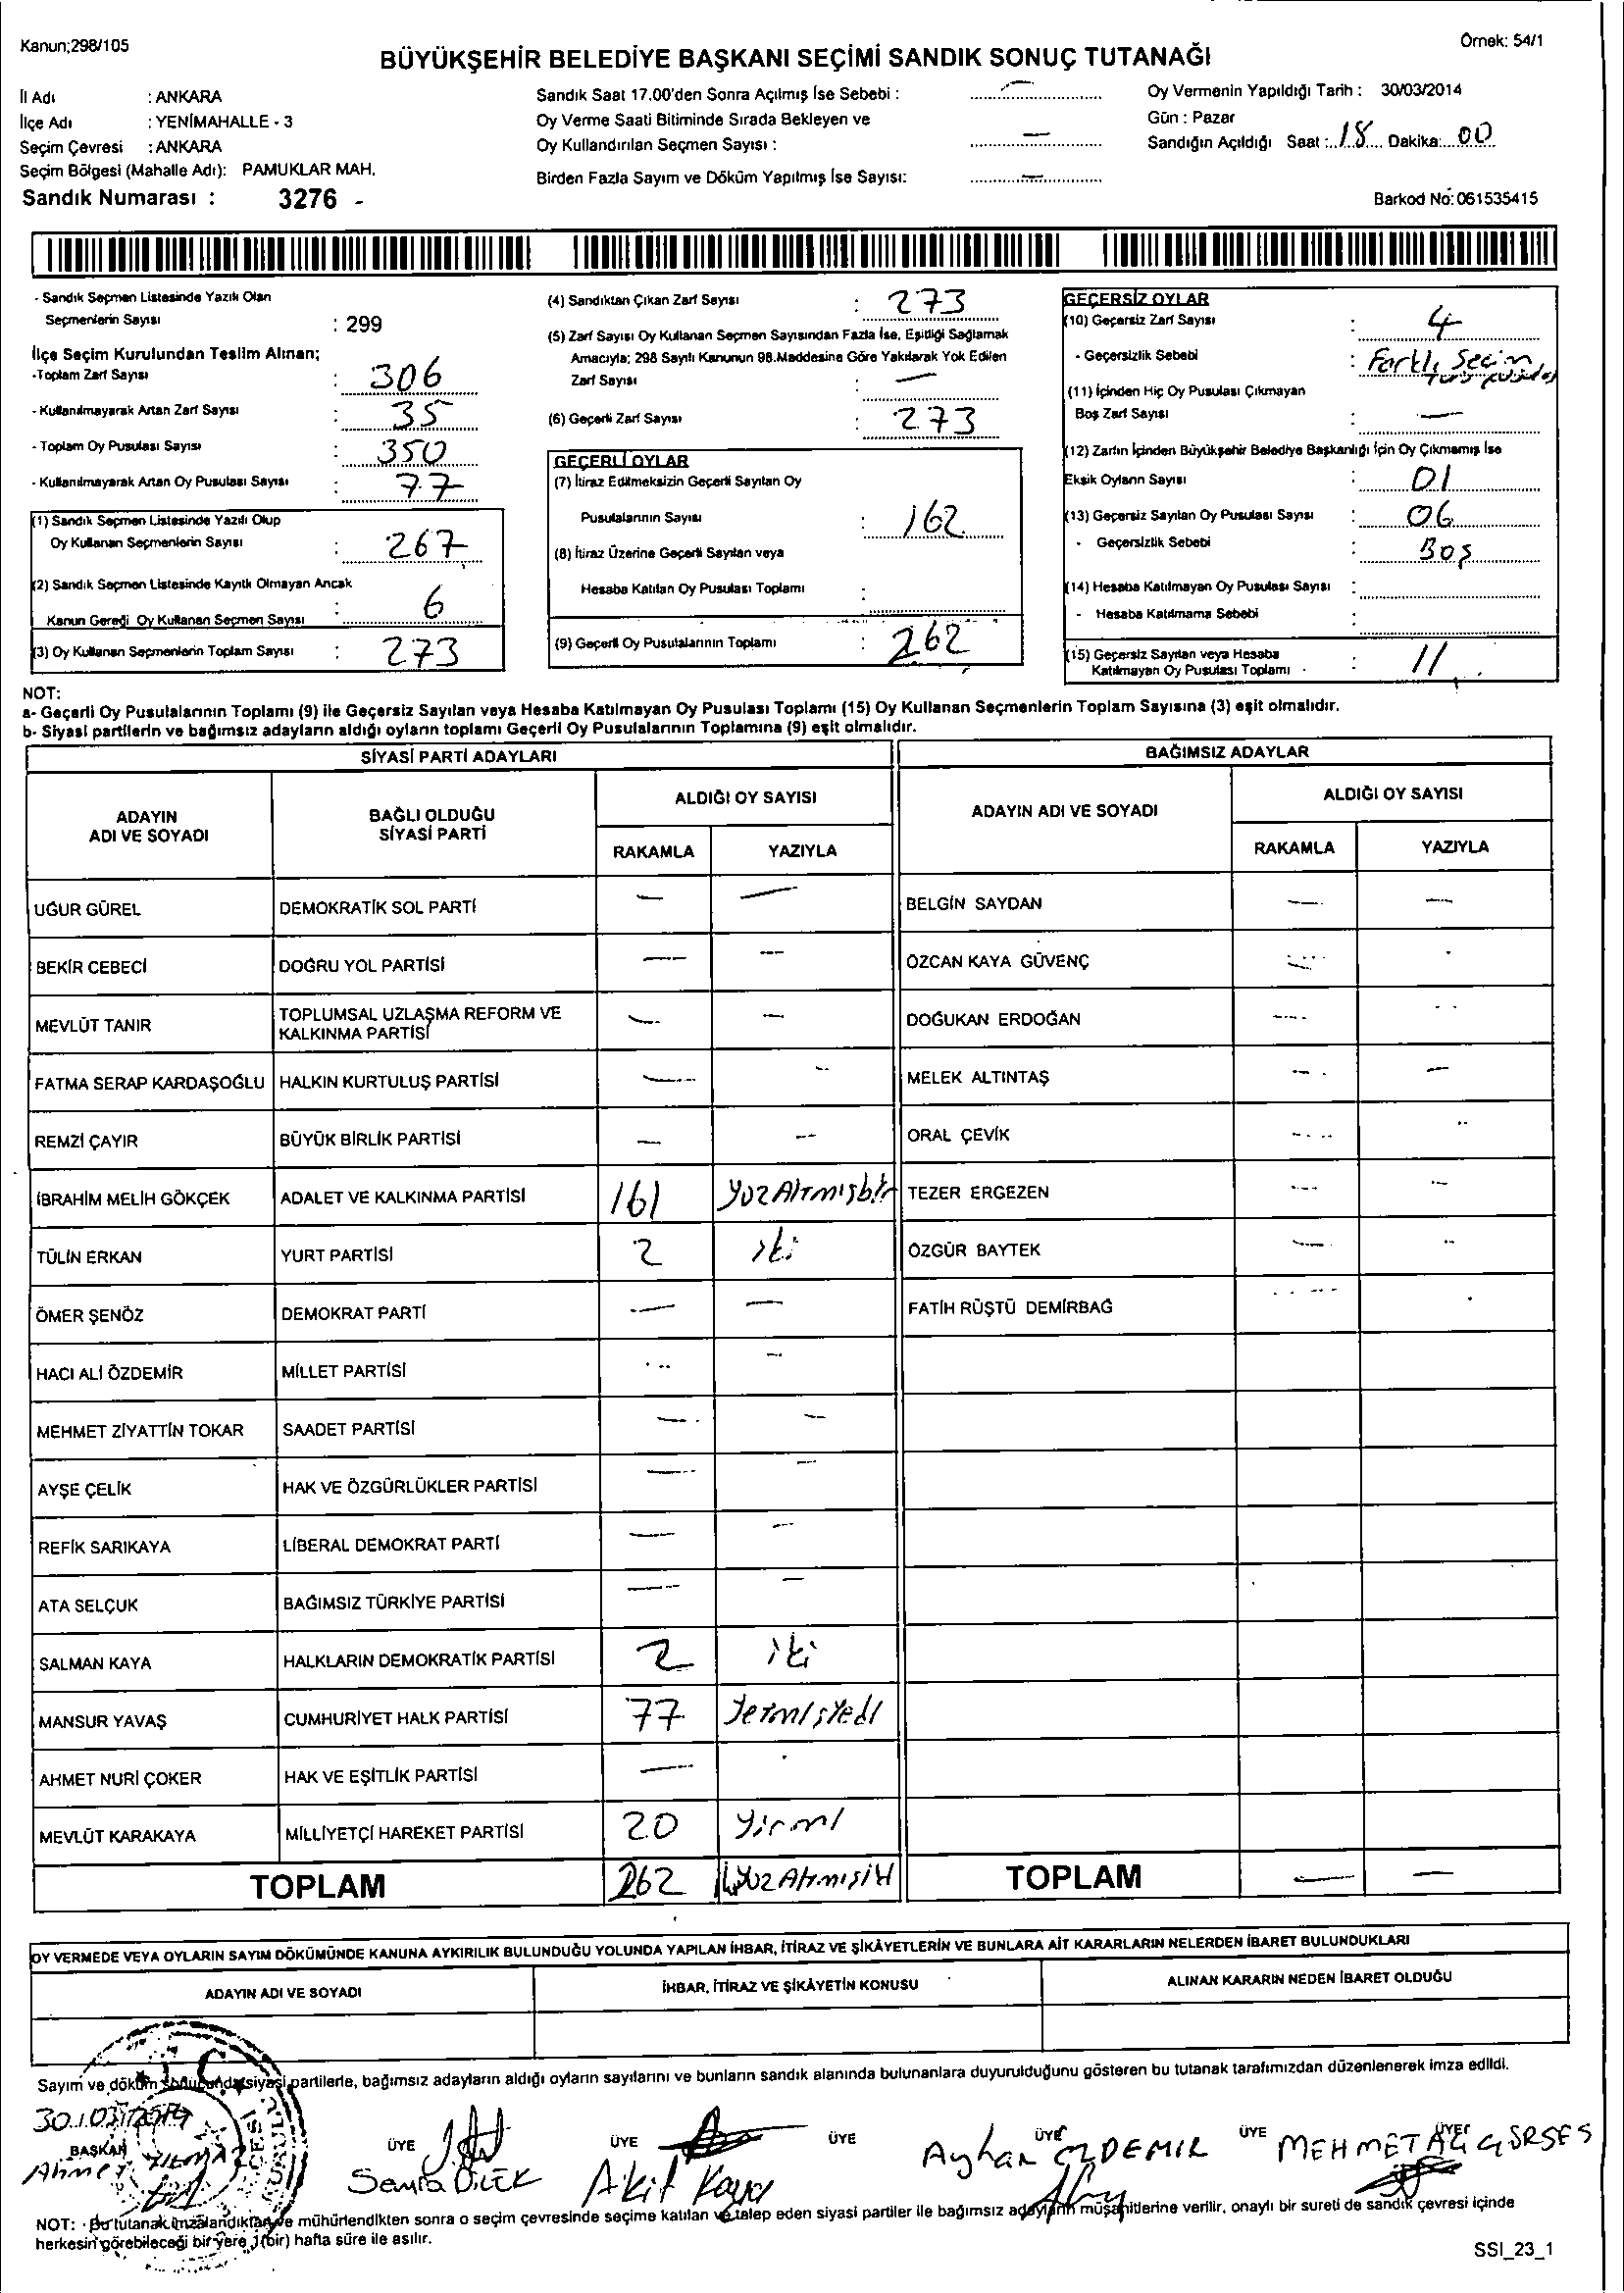 Kanun;298/105
Örnek: 54/1
BÜYÜKŞEHİR BELEDİYE BAŞKANI SEÇİMİ SANDIK SONUÇ TUTANAĞI
İl Adı : ANKARA
İlçe Adı : YENİMAHALLE - 3
Seçim Çevresi : ANKARA
Seçim Bölgesi (Mahalle Adı): PAMUKLAR MAH.
Sandık Numarası : 3276 -
Sandık Saat 17.00'den Sonra Açılmış İse Sebebi : —
Oy Verme Saati Bitiminde Sırada Bekleyen ve
Oy Kullandırılan Seçmen Sayısı : —
Birden Fazla Sayım ve Döküm Yapılmış İse Sayısı: —
Oy Vermenin Yapıldığı Tarih : 30/03/2014
Gün : Pazar
Sandığın Açıldığı Saat : 18 Dakika: 00
Barkod No: 061535415
- Sandık Seçmen Listesinde Yazılı Olan
Seçmenlerin Sayısı : 299
İlçe Seçim Kurulundan Teslim Alınan;
-Toplam Zarf Sayısı : 306
- Kullanılmayarak Artan Zarf Sayısı : 35
- Toplam Oy Pusulası Sayısı : 350
- Kullanılmayarak Artan Oy Pusulası Sayısı : 77
(1) Sandık Seçmen Listesinde Yazılı Olup
Oy Kullanan Seçmenlerin Sayısı : 267
(2) Sandık Seçmen Listesinde Kayıtlı Olmayan Ancak
Kanun Gereği Oy Kullanan Seçmen Sayısı : 6
(3) Oy Kullanan Seçmenlerin Toplam Sayısı : 273
(4) Sandıktan Çıkan Zarf Sayısı : 273
(5) Zarf Sayısı Oy Kullanan Seçmen Sayısından Fazla İse, Eşitliği Sağlamak
Amacıyla; 298 Sayılı Kanunun 98.Maddesine Göre Yakılarak Yok Edilen
Zarf Sayısı : —
(6) Geçerli Zarf Sayısı : 273
GEÇERLİ OYLAR
(7) İtiraz Edilmeksizin Geçerli Sayılan Oy
Pusulalarının Sayısı : 162
(8) İtiraz Üzerine Geçerli Sayılan veya
Hesaba Katılan Oy Pusulası Toplamı :
(9) Geçerli Oy Pusulalarının Toplamı : 262
GEÇERSİZ OYLAR
(10) Geçersiz Zarf Sayısı : 4
- Geçersizlik Sebebi : Farklı Seçim
(11) İçinden Hiç Oy Pusulası Çıkmayan
Boş Zarf Sayısı : —
(12) Zarfın İçinden Büyükşehir Belediye Başkanlığı İçin Oy Çıkmamış İse
Eksik Oyların Sayısı : 01
(13) Geçersiz Sayılan Oy Pusulası Sayısı : 06
- Geçersizlik Sebebi : Boş
(14) Hesaba Katılmayan Oy Pusulası Sayısı :
- Hesaba Katılmama Sebebi :
(15) Geçersiz Sayılan veya Hesaba
Katılmayan Oy Pusulası Toplamı : 11
NOT:
a- Geçerli Oy Pusulalarının Toplamı (9) ile Geçersiz Sayılan veya Hesaba Katılmayan Oy Pusulası Toplamı (15) Oy Kullanan Seçmenlerin Toplam Sayısına (3) eşit olmalıdır.
b- Siyasi partilerin ve bağımsız adayların aldığı oyların toplamı Geçerli Oy Pusulalarının Toplamına (9) eşit olmalıdır.
SİYASİ PARTİ ADAYLARI
ADAYIN ADI VE SOYADI BAĞLI OLDUĞU SİYASİ PARTİ ALDIĞI OY SAYISI
RAKAMLA YAZIYLA
UĞUR GÜREL DEMOKRATİK SOL PARTİ — —
BEKİR CEBECİ DOĞRU YOL PARTİSİ — —
MEVLÜT TANIR TOPLUMSAL UZLAŞMA REFORM VE KALKINMA PARTİSİ — —
FATMA SERAP KARDAŞOĞLU HALKIN KURTULUŞ PARTİSİ — —
REMZİ ÇAYIR BÜYÜK BİRLİK PARTİSİ — —
İBRAHİM MELİH GÖKÇEK ADALET VE KALKINMA PARTİSİ 161 YüzAltmışbir
TÜLİN ERKAN YURT PARTİSİ 2 iki
ÖMER ŞENÖZ DEMOKRAT PARTİ — —
HACI ALİ ÖZDEMİR MİLLET PARTİSİ — —
MEHMET ZİYATTİN TOKAR SAADET PARTİSİ — —
AYŞE ÇELİK HAK VE ÖZGÜRLÜKLER PARTİSİ — —
REFİK SARIKAYA LİBERAL DEMOKRAT PARTİ — —
ATA SELÇUK BAĞIMSIZ TÜRKİYE PARTİSİ — —
SALMAN KAYA HALKLARIN DEMOKRATİK PARTİSİ 2 iki
MANSUR YAVAŞ CUMHURİYET HALK PARTİSİ 77 Yetmişyedi
AHMET NURİ ÇOKER HAK VE EŞİTLİK PARTİSİ —
MEVLÜT KARAKAYA MİLLİYETÇİ HAREKET PARTİSİ 20 Yirmi
TOPLAM 262 ikiyüzAtmışiki
BAĞIMSIZ ADAYLAR
ADAYIN ADI VE SOYADI ALDIĞI OY SAYISI
RAKAMLA YAZIYLA
BELGİN SAYDAN — —
ÖZCAN KAYA GÜVENÇ —
DOĞUKAN ERDOĞAN — —
MELEK ALTINTAŞ — —
ORAL ÇEVİK — —
TEZER ERGEZEN — —
ÖZGÜR BAYTEK — —
FATİH RÜŞTÜ DEMİRBAĞ —
TOPLAM — —
OY VERMEDE VEYA OYLARIN SAYIM DÖKÜMÜNDE KANUNA AYKIRILIK BULUNDUĞU YOLUNDA YAPILAN İHBAR, İTİRAZ VE ŞİKÂYETLERİN VE BUNLARA AİT KARARLARIN NELERDEN İBARET BULUNDUKLARI
ADAYIN ADI VE SOYADI İHBAR, İTİRAZ VE ŞİKÂYETİN KONUSU ALINAN KARARIN NEDEN İBARET OLDUĞU
Sayım ve döküm sonucunda siyasi partilerle, bağımsız adayların aldığı oyların sayılarını ve bunların sandık alanında bulunanlara duyurulduğunu gösteren bu tutanak tarafımızdan düzenlenerek imza edildi.
30/03/2014
BAŞKAN ÜYE ÜYE ÜYE ÜYE ÜYE ÜYE
Ahmet YILMAZ Semra DİLEK Akif Kaya Ayhan ÖZDEMİR MEHMET ALİ GÜRSES
NOT: - Bu tutanak imzalandıktan ve mühürlendikten sonra o seçim çevresinde seçime katılan ve talep eden siyasi partiler ile bağımsız adayların müşahitlerine verilir, onaylı bir sureti de sandık çevresi içinde
herkesin görebileceği bir yere 1(bir) hafta süre ile asılır.
SSI_23_1